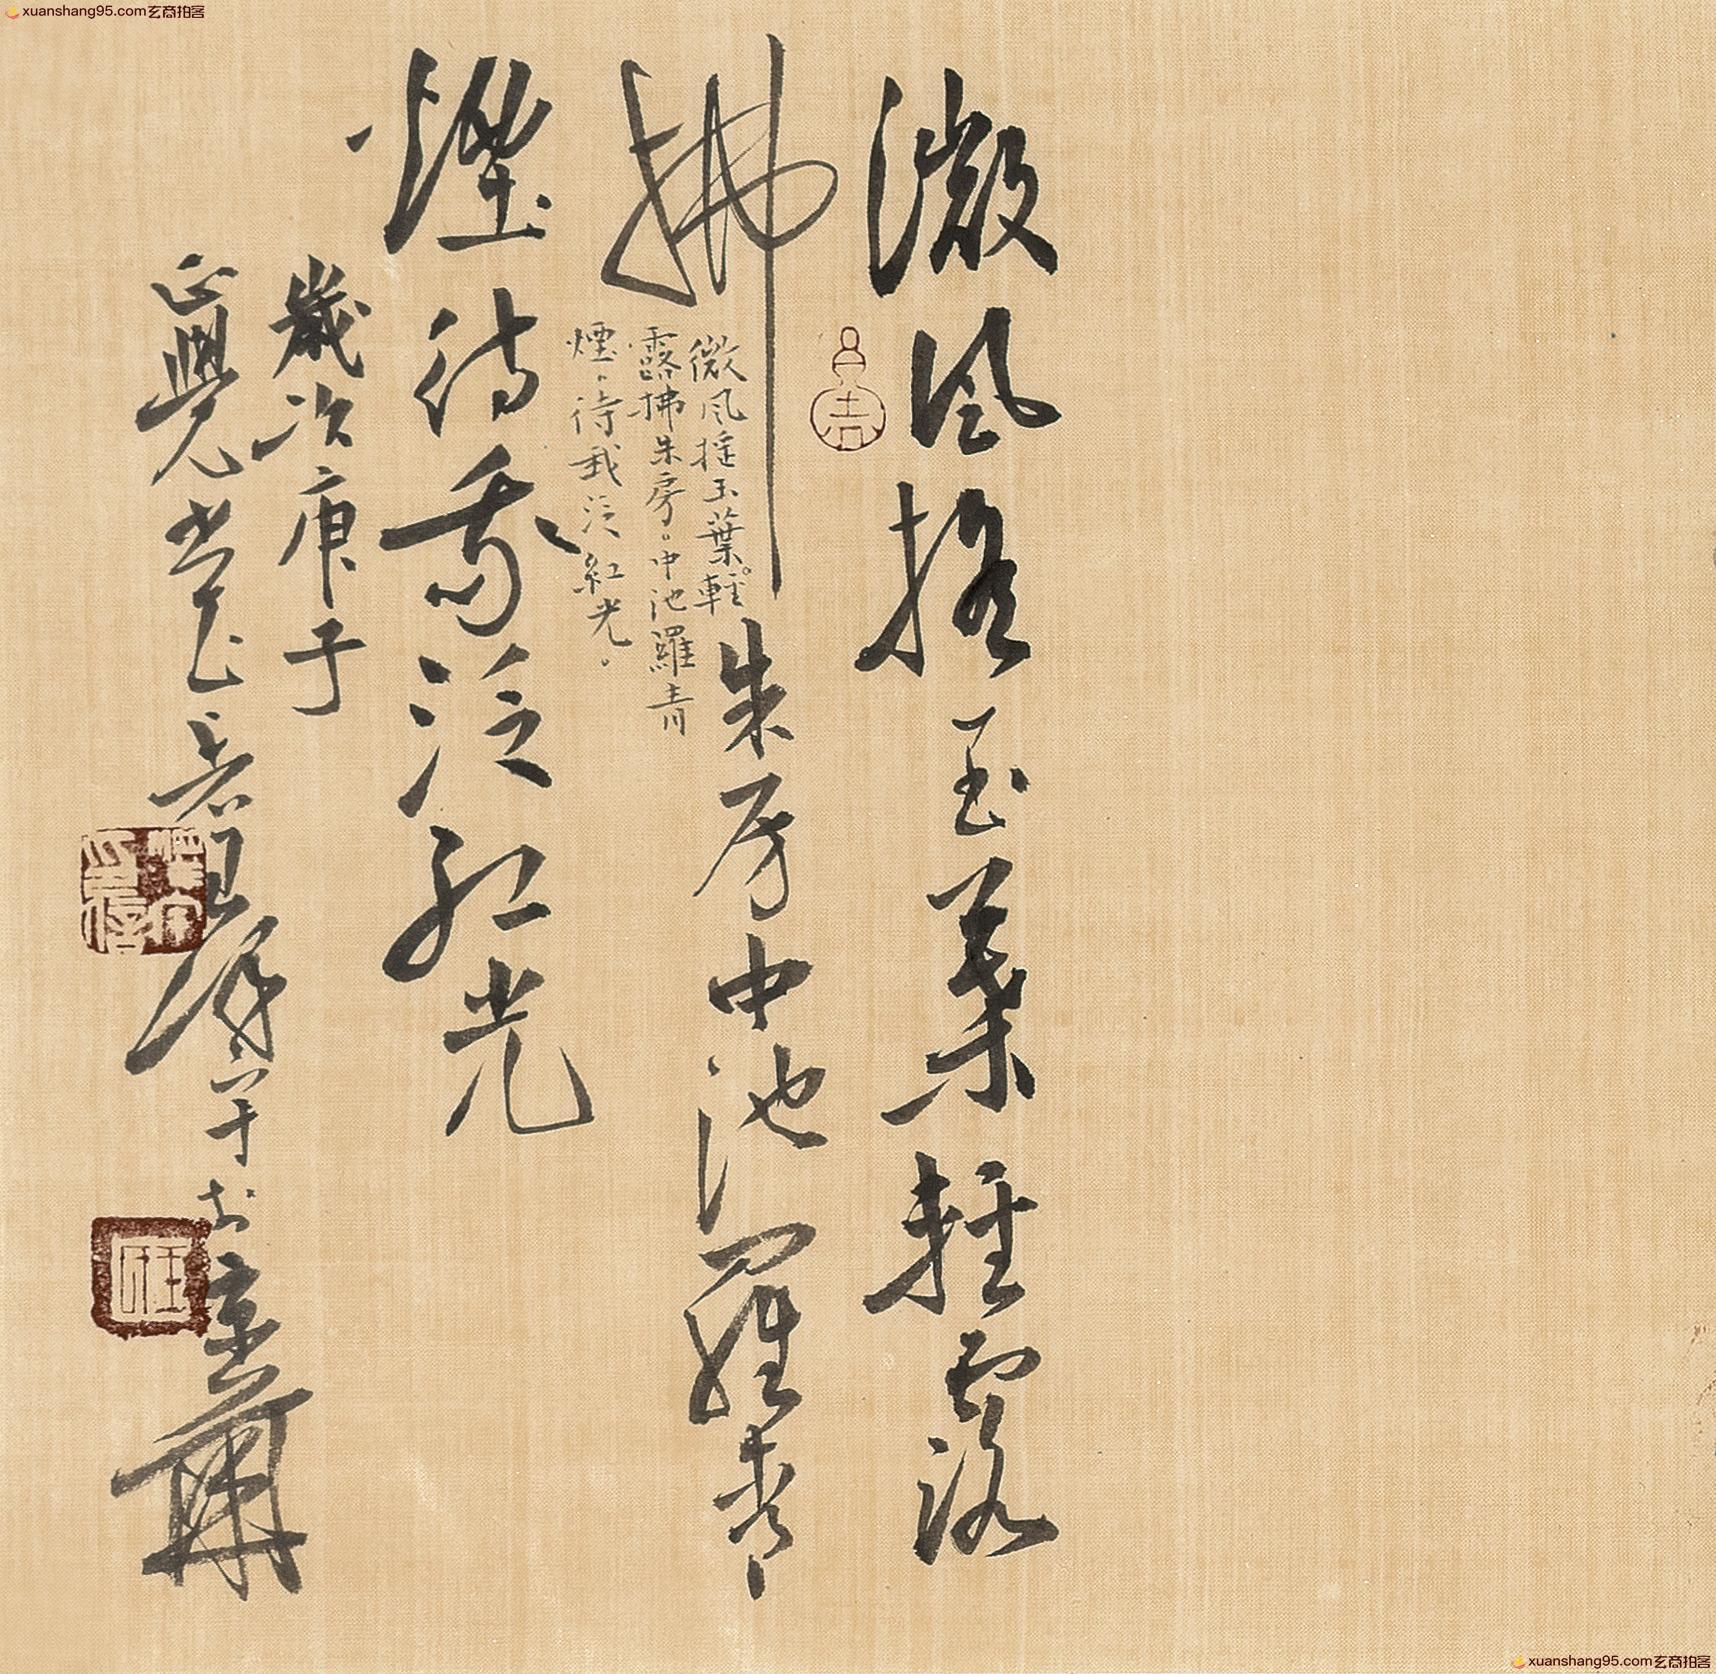 xuanshang95.com玄商拍客
微風搖玉葉輕露
拂朱房中池羅青
煙待我泛紅光
微風搖玉葉。輕
露拂朱房。中池羅青
煙。待我泛紅光。
吉
歲次庚子
正覺堂
xuanshang95.com玄商拍客